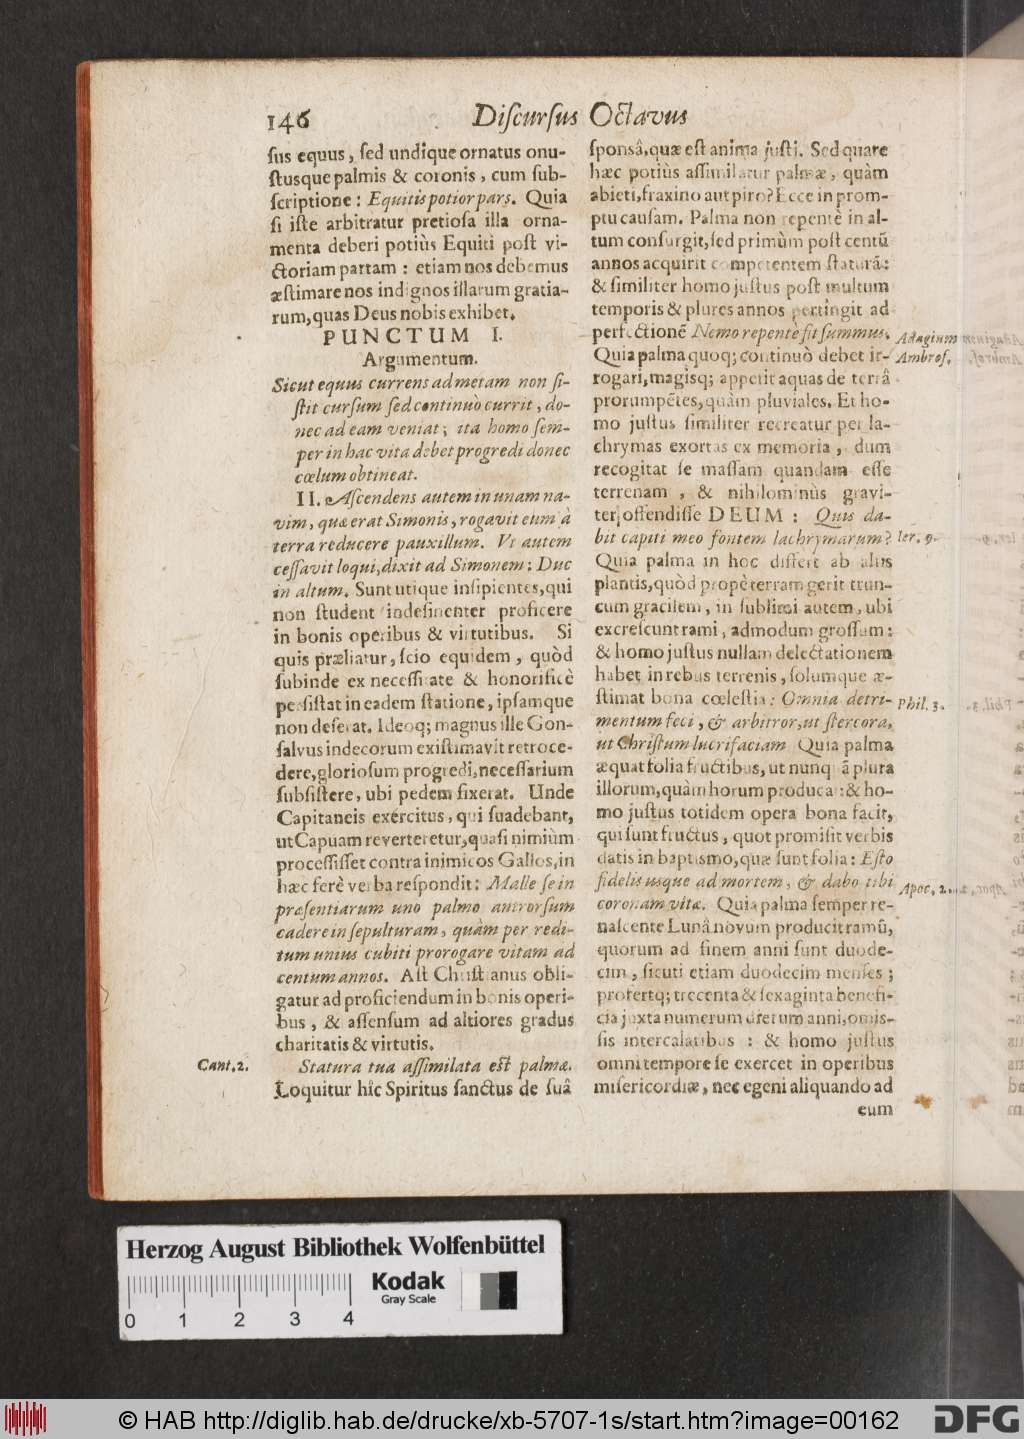 146 Discursus Octavus
sus equus, sed undique ornatus onu-
stusque palmis & coronis, cum sub-
scriptione: Equitis potior pars. Quia
si iste arbitratur pretiosa illa orna-
menta deberi potiùs Equiti post vi-
ctoriam partam: etiam nos debemus
æstimare nos indignos illarum gratia-
rum, quas Deus nobis exhibet.
PUNCTUM I.
Argumentum.
Sicut equus currens ad metam non si-
stit cursum sed continuò currit, do-
nec ad eam veniat; ita homo sem-
per in hac vita debet progredi donec
cœlum obtineat.
II. Ascendens autem in unam na-
vim, quæ erat Simonis, rogavit eum à
terra reducere pauxillum. Ut autem
cessavit loqui, dixit ad Simonem: Duc
in altum. Sunt utique insipientes, qui
non student indesinenter proficere
in bonis operibus & virtutibus. Si
quis præliatur, scio equidem, quòd
subinde ex necessitate & honorificè
persistat in eadem statione, ipsamque
non deserat. Ideoq; magnus ille Gon-
salvus indecorum existimavit retroce-
dere, gloriosum progredi, necessarium
subsistere, ubi pedem fixerat. Unde
Capitaneis exercitus, qui suadebant,
ut Capuam reverteretur, quasi nimiùm
processisset contra inimicos Gallos, in
hæc ferè verba respondit: Malle se in
præsentiarum uno palmo antrorsum
cadere in sepulturam, quàm per redi-
tum unius cubiti prorogare vitam ad
centum annos. Ast Christianus obli-
gatur ad proficiendum in bonis operi-
bus, & assensum ad altiores gradus
charitatis & virtutis.
Cant. 2. Statura tua assimilata est palmæ.
Loquitur hîc Spiritus sanctus de suâ
sponsâ, quæ est anima justi. Sed quare
hæc potiùs assimilatur palmæ, quàm
abieti, fraxino aut piro? Ecce in prom-
ptu causam. Palma non repentè in al-
tum consurgit, sed primùm post centũ
annos acquirit competentem staturã:
& similiter homo justus post multum
temporis & plures annos pertingit ad
perfectionẽ Nemo repente fit summus. Adagium
Quia palma quoq; continuò debet ir- Ambros.
rogari, magisq; appetit aquas de terrâ
prorumpẽtes, quàm pluviales. Et ho-
mo justus similiter recreatur per la-
chrymas exortas ex memoria, dum
recogitat se massam quandam esse
terrenam, & nihilominùs gravi-
ter offendisse DEUM: Quis da-
bit capiti meo fontem lachrymarum? Ier. 9.
Quia palma in hoc differt ab aliis
plantis, quòd propè terram gerit trun-
cum gracilem, in sublimi autem, ubi
excrescunt rami, admodum grossum:
& homo justus nullam delectationem
habet in rebus terrenis, solumque æ-
stimat bona cœlestia: Omnia detri- Phil. 3.
mentum feci, & arbitror, ut stercora,
ut Christum lucrifaciam Quia palma
æquat folia fructibus, ut nunquã plura
illorum, quàm horum producat: & ho-
mo justus totidem opera bona facit,
qui sunt fructus, quot promisit verbis
datis in baptismo, quæ sunt folia: Esto
fidelis usque ad mortem, & dabo tibi Apoc. 2.
coronam vitæ. Quia palma semper re-
nascente Lunâ novum producit ramũ,
quorum ad finem anni sunt duode-
cim, sicuti etiam duodecim menses;
profertq; trecenta & sexaginta benefi-
cia juxta numerum dierum anni, omis-
sis intercalatibus: & homo justus
omni tempore se exercet in operibus
misericordiæ, nec egeni aliquando ad
eum
Herzog August Bibliothek Wolfenbüttel
Kodak
Gray Scale
0 1 2 3 4
© HAB http://diglib.hab.de/drucke/xb-5707-1s/start.htm?image=00162
DFG